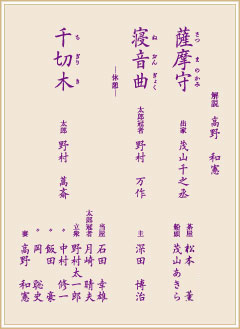 解説 高野 和憲
薩摩守
さつまのかみ
出家 茂山千之丞
茶屋 松本 薫
船頭 茂山あきら
寝音曲
ねおんぎょく
太郎冠者 野村 万作
主 深田 博治
―休憩―
千切木
ちぎりき
太郎 野村 萬斎
当屋 石田 幸雄
太郎冠者 月崎 晴夫
立衆 野村太一郎
〃 中村 修一
〃 飯田 豪
〃 岡 聡史
妻 高野 和憲